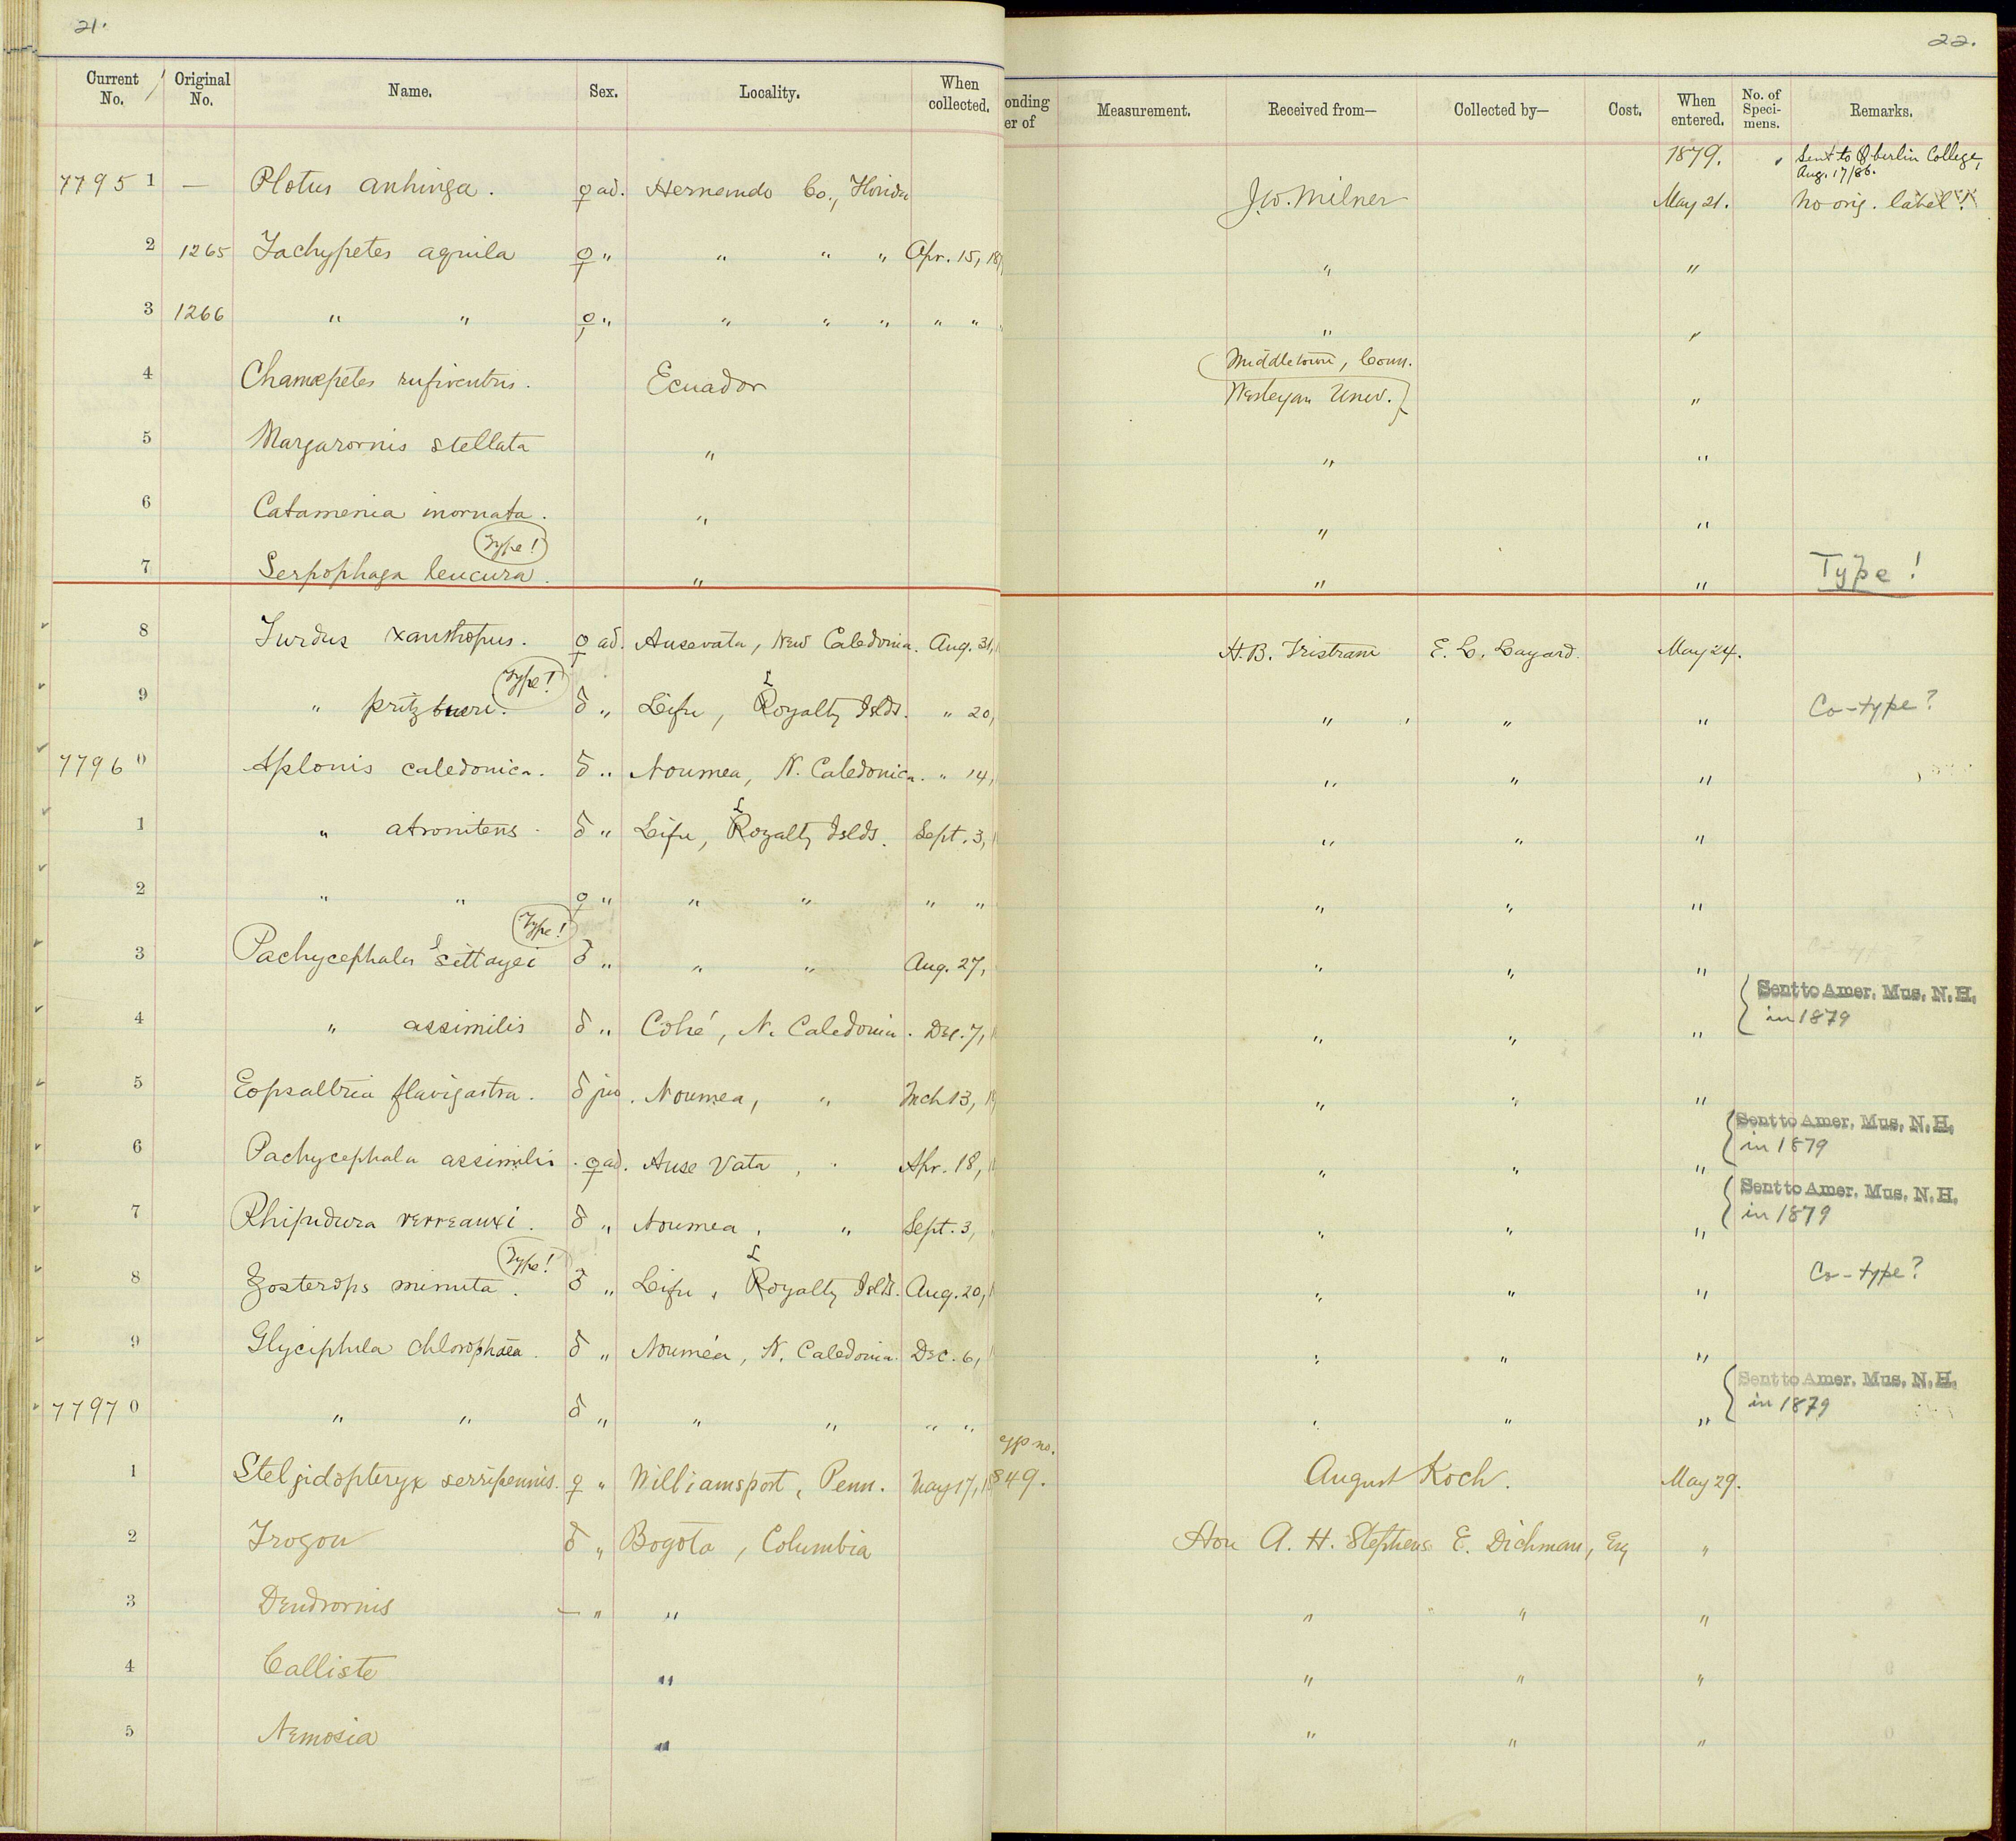 21.
Current No. Original No. Name. Sex. Locality. When collected.
77951 — Plotus anhinga. ♀ ad. Hernando Co., Florida
2 1265 Tachypetes aquila ♀ " " " " Apr. 15, 18
3 1266 " " ♀ " " " " " "
4 Chamæpetes rufiventris. Ecuador
5 Margarornis stellata "
6 Catamenia inornata. "
Type!
7 Serpophaga leucura. "
8 Turdus xanthopus. ♀ ad. Ansevata, New Caledonia. Aug. 31,
Type!
9 " pritzbueri. ♂ " Lifu, Loyalty Islds. " 20,
77960 Aplonis caledonica. ♂ " Noumea, N. Caledonica. " 14,
1 " atronitens. ♂ " Lifu, Loyalty Islds. Sept. 3,
2 " " ♀ " " " " "
Type!
3 Pachycephala ♂ " " " Aug. 27,
4 " assimilis ♂ " Côhé, N. Caledonia. Dec. 7,
5 Eopsaltria flavigastra. ♂ juv. Noumea, " Mch 13,
6 Pachycephala assimilis. ♀ ad. Anse Vata, " Apr. 18,
7 Rhipidura verreauxi. ♂ " Noumea, " Sept. 3,
Type!
8 Zosterops minuta. ♂ " Lifu, Loyalty Islds. Aug. 20,
9 Glyciphila chlorophæa. ♂ " Nouméa, N. Caledonia. Dec. 6,
77970 " " ♂ " " " " "
1 Stelgidopteryx serripennis. ♀ " Williamsport, Penn. May 17, 18
2 Trogon ♂ " Bogota, Columbia
3 Dendrornis — " "
4 Calliste "
5 Nemosia "
22.
onding er of Measurement. Received from— Collected by— Cost. When entered. No. of Specimens. Remarks.
1879. Sent to Oberlin College,
Aug. 17/86.
J.W. Milner May 21. No orig. label!
" "
" "
Middletown, Conn.
Wesleyan Univ. "
" "
" "
" " Type!
H.B. Tristram E. L. Layard. May 24.
" " " Co-type?
" " "
" " "
" " "
" " "
Sent to Amer. Mus. N.H.
" " " in 1879
" " "
Sent to Amer. Mus. N.H.
in 1879
" " "
Sent to Amer. Mus. N.H.
in 1879
" " "
" " " Co-type?
" " "
Sent to Amer. Mus. N.H.
in 1879
" " "
no.
849. August Koch. May 29.
Hon A. H. Stephens E. Dichman, Esq "
" " "
" " "
" " "